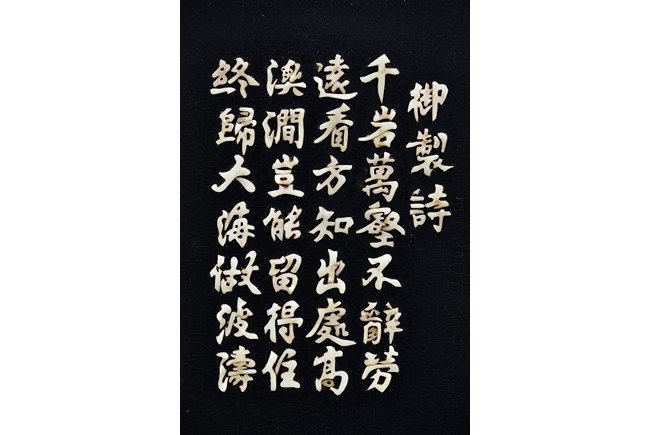 御製詩
千岩萬壑不辭勞
遠看方知出處高
溪澗豈能留得住
終歸大海做波濤